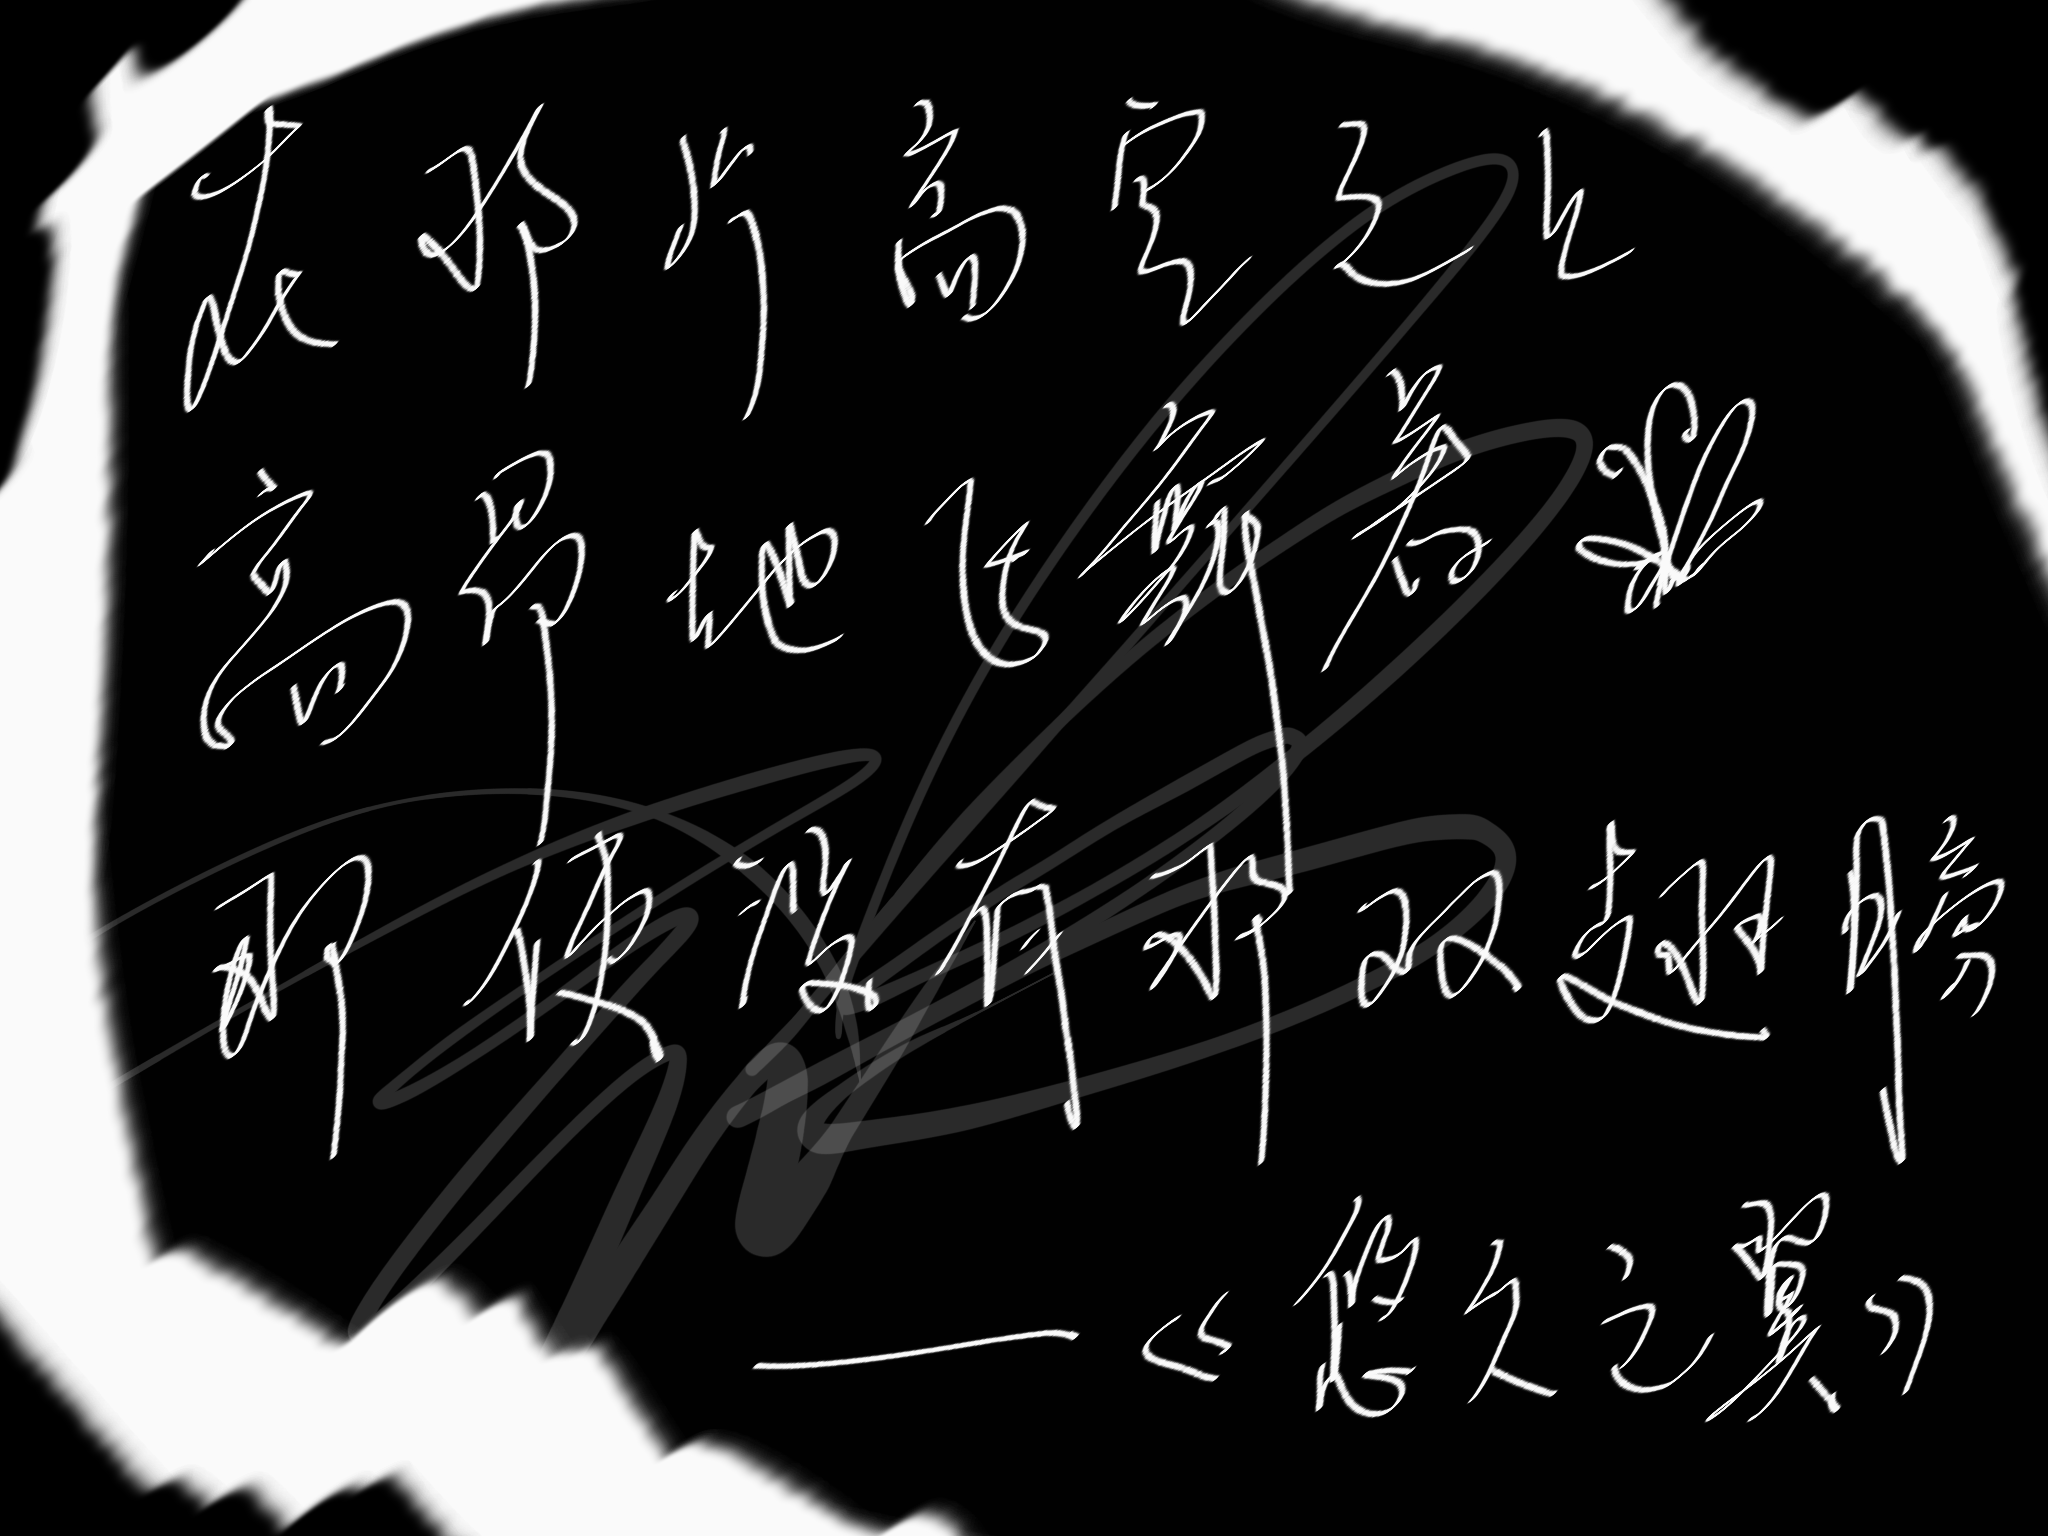 在那片高空之上
高昂地飞翔着
即使没有那双翅膀
——《悠久之翼》